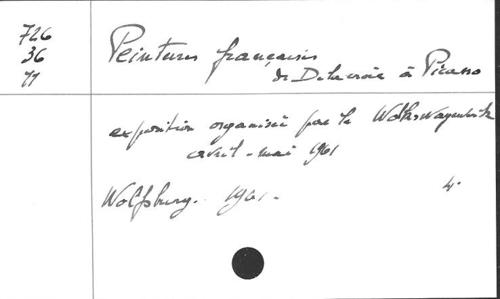 726
36
77
Peintures françaises
de Delacroix à Picasso
exposition organisée par la Volkswagenwerk
avril-mai 1961
Wolfsburg. 1961. 4°